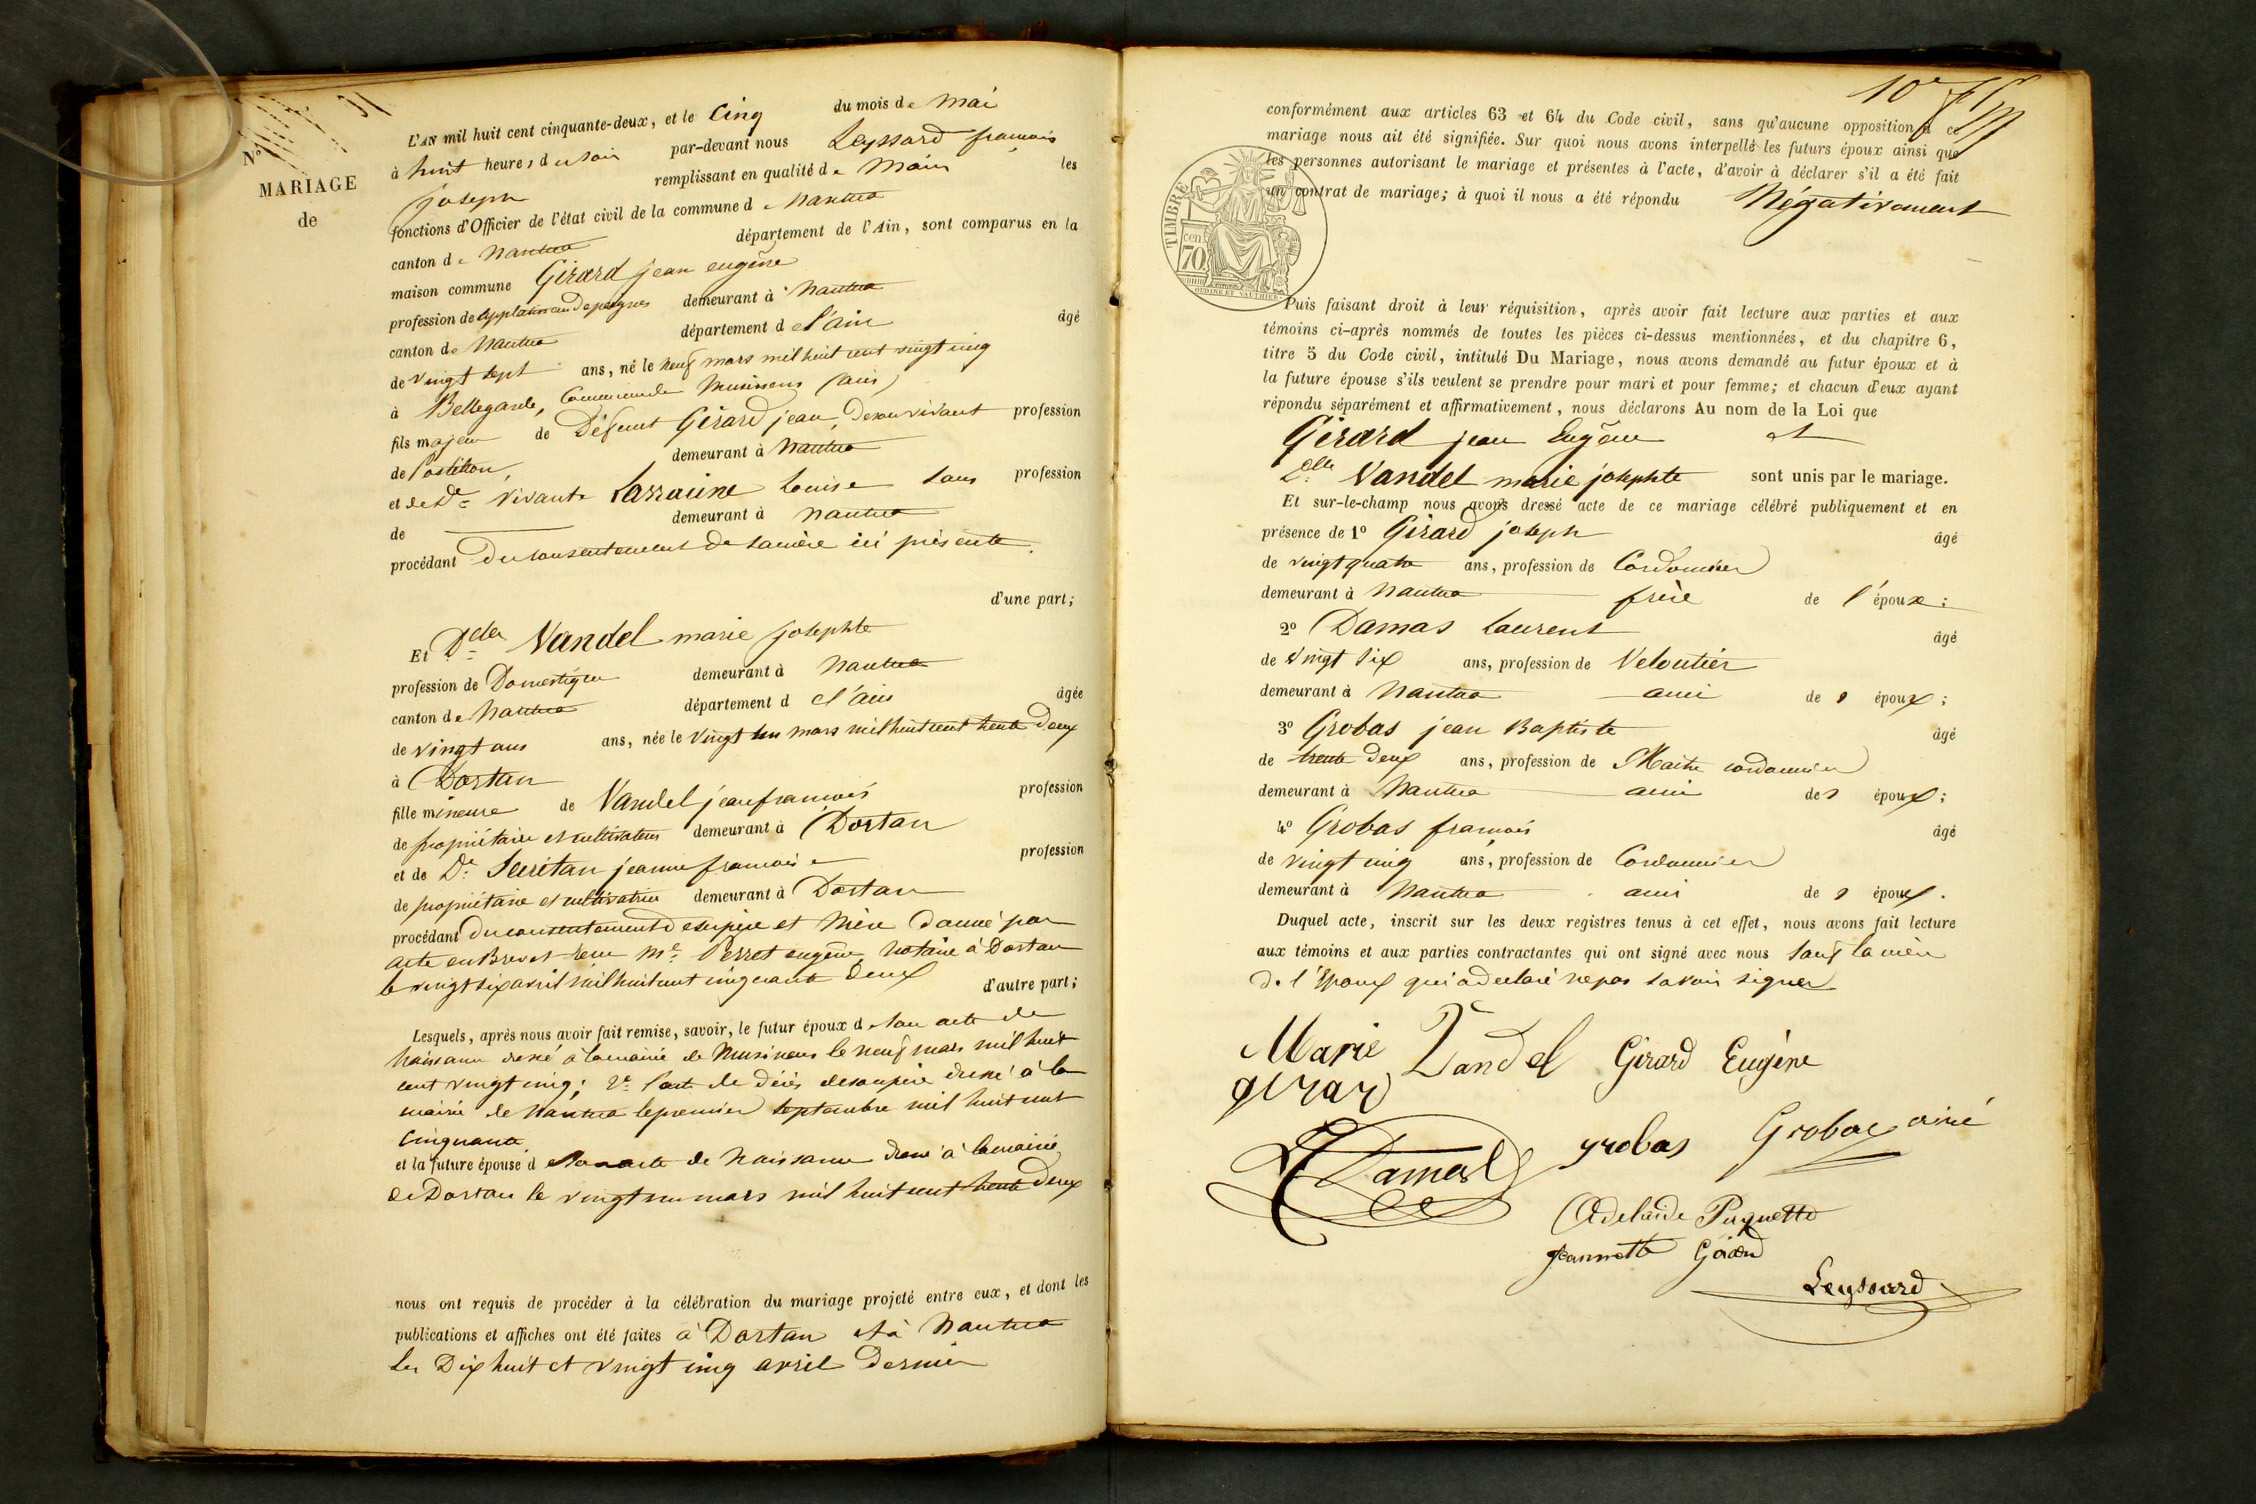 N° 11
MARIAGE
de
L'AN mil huit cent cinquante-deux, et le Cinq du mois de Mai
à huit heures du soir par-devant nous Leyssard françois
joseph remplissant en qualité de Maire les
fonctions d'Officier de l'état civil de la commune de Nantua
canton de Nantua département de l'Ain, sont comparus en la
maison commune Girard jean eugène
profession de applatisseur de peignes demeurant à Nantua
canton de Nantua département de l'ain âgé
de vingt sept ans, né le neuf mars mil huit cent vingt cinq
à Bellegarde, Commune de Musinens (ain)
fils majeur de Défunt Girard jean, de son vivant profession
de Postillon, demeurant à Nantua
et de De vivante Larraine Louise sans profession
de demeurant à Nantua
procédant du consentement de sa mère ici présente.
d'une part;
Et Delle Vandel marie josephte
profession de Domestique demeurant à Nantua
canton de Nantua département de l'ain âgée
de vingt ans ans, née le vingt un mars mil huit cent trente deux
à Dortan
fille mineure de Vandel jean françois profession
de propriétaire et cultivateur demeurant à Dortan
et de De Secrétan jeanne françoise profession
de propriétaire et cultivatrice demeurant à Dortan
procédant du consentement de ses père et mère donné par
acte en Brevet reçu Me Perret eugène notaire à Dortan
le vingt six avril mil huit cent cinquante deux d'autre part;
Lesquels, après nous avoir fait remise, savoir, le futur époux de son acte de
naissance dressé à la mairie de Musinens le neuf mars mil huit
cent vingt cinq; 2° l'acte de décès de son père dressé à la
mairie de Nantua le premier septembre mil huit cent
cinquante
et la future épouse de son acte de naissance dressé à la mairie
de Dortan le vingt un mars mil huit cent trente deux
nous ont requis de procéder à la célébration du mariage projeté entre eux, et dont les
publications et affiches ont été faites à Dortan et à Nantua
les Dix huit et vingt cinq avril dernier
10e
conformément aux articles 63 et 64 du Code civil, sans qu'aucune opposition à ce
mariage nous ait été signifiée. Sur quoi nous avons interpellé les futurs époux ainsi que
les personnes autorisant le mariage et présentes à l'acte, d'avoir à déclarer s'il a été fait
un contrat de mariage; à quoi il nous a été répondu Négativement
TIMBRE
cen
70
Puis faisant droit à leur réquisition, après avoir fait lecture aux parties et aux
témoins ci-après nommés de toutes les pièces ci-dessus mentionnées, et du chapitre 6,
titre 5 du Code civil, intitulé Du Mariage, nous avons demandé au futur époux et à
la future épouse s'ils veulent se prendre pour mari et pour femme; et chacun d'eux ayant
répondu séparément et affirmativement, nous déclarons Au nom de la Loi que
Girard jean Eugène et
Delle Vandel marie josephte sont unis par le mariage.
Et sur-le-champ nous avons dressé acte de ce mariage célébré publiquement et en
présence de 1° Girard joseph âgé
de vingt quatre ans, profession de Cordonnier
demeurant à Nantua frère de l'époux;
2° Damas Laurent âgé
de vingt six ans, profession de Veloutier
demeurant à Nantua ami des époux;
3° Grobas jean Baptiste âgé
de trente deux ans, profession de Maître cordonnier
demeurant à Nantua ami des époux;
4° Grobas françois âgé
de vingt cinq ans, profession de Cordonnier
demeurant à Nantua ami des époux.
Duquel acte, inscrit sur les deux registres tenus à cet effet, nous avons fait lecture
aux témoins et aux parties contractantes qui ont signé avec nous sauf la mère
de l'époux qui a déclaré ne pas savoir signer
Marie Vandel Girard Eugène
girard
Damas L grobas Grobas ainé
Adelaïde Puquette
Jeannette Girard
Leyssard